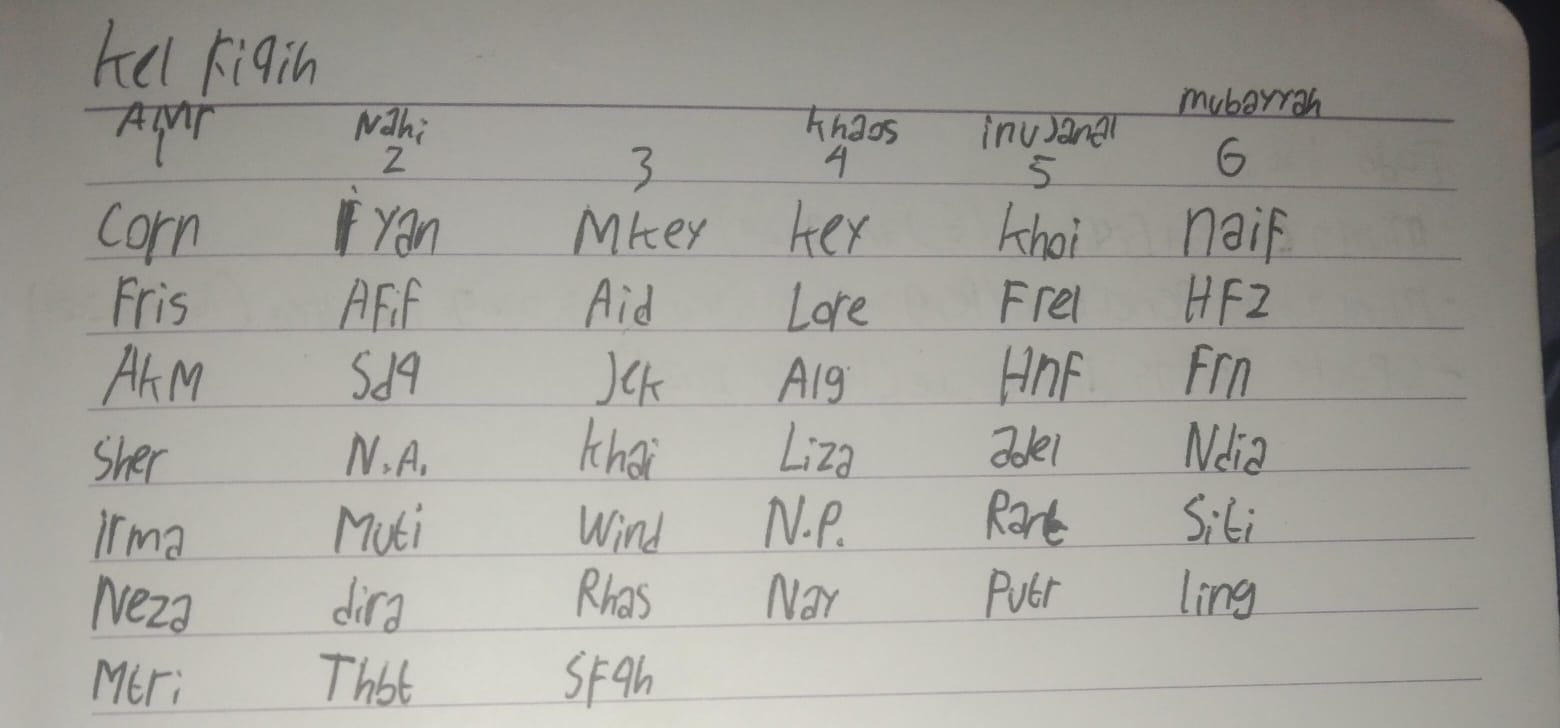 Kel Fiqih
Amr Nahi khaos inuJanal mubayyah
1 2 3 4 5 6
Corn Fyan Mkey key khoi naif
Fris AFif Aid Lore Frel HFz
AkM Sdq Jek Alg HnF Frn
Sher N.A. khai Liza adel Ndia
Irma Muti Wind N.P. Rark Siti
Neza dira Rhas Nay Putr ling
Mtri Thbt SFqh